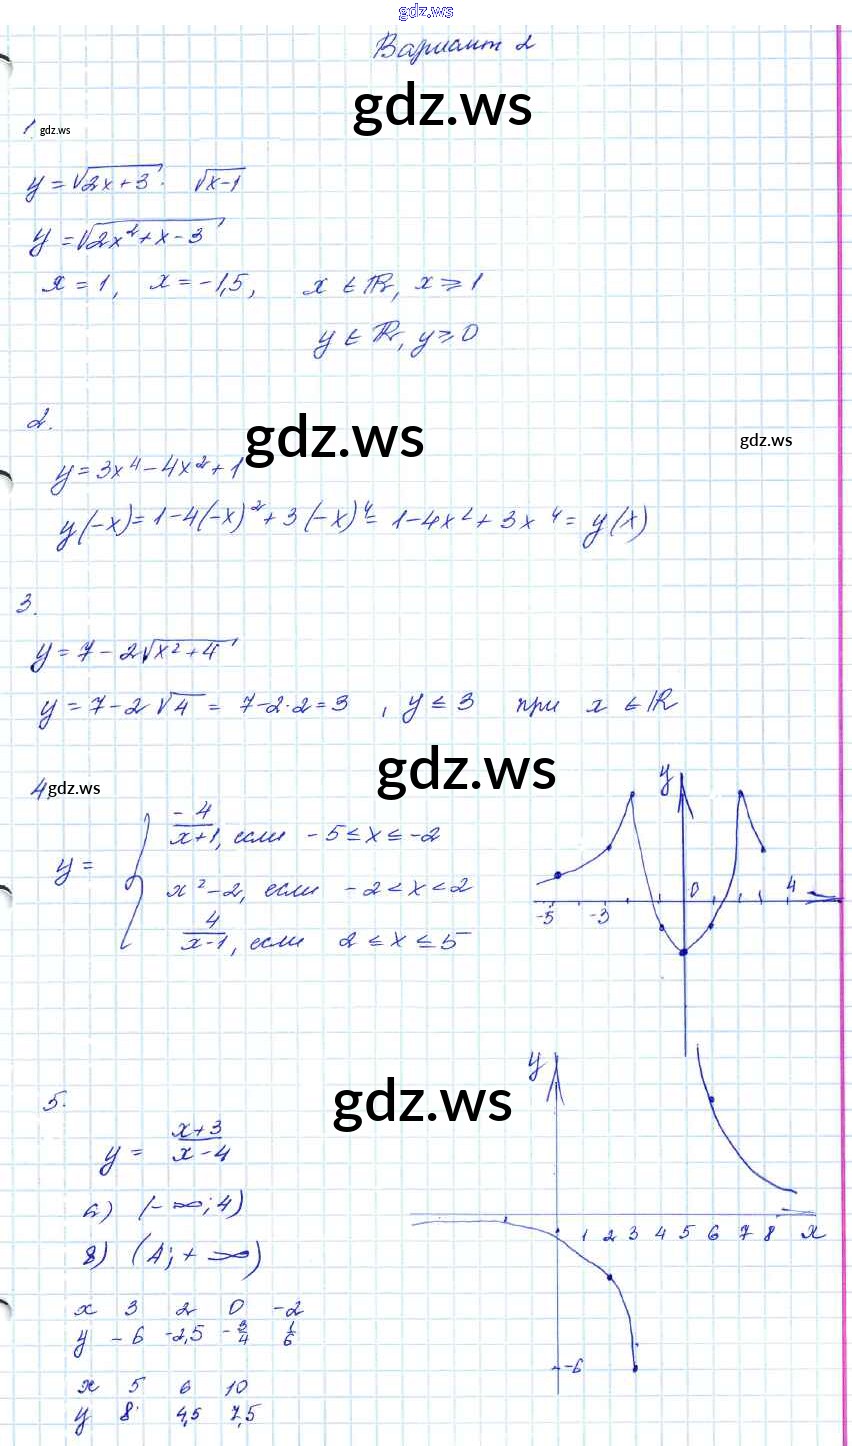 gdz.ws
Вариант 2
gdz.ws
1. gdz.ws
y = √(2x+3) · √(x-1)
y = √(2x² + x - 3)
x = 1, x = -1,5, x ∈ R, x ⩾ 1
y ∈ R, y ⩾ 0
2.
gdz.ws
gdz.ws
y = 3x⁴ - 4x² + 1
y(-x) = 1 - 4(-x)² + 3(-x)⁴ = 1 - 4x² + 3x⁴ = y(x)
3.
y = 7 - 2√(x² + 4)
y = 7 - 2√4 = 7 - 2·2 = 3, y ≤ 3 при x ∈ R
gdz.ws
4 gdz.ws
y =
-4/(x+1), если -5 ≤ x ≤ -2
x² - 2, если -2 < x < 2
4/(x-1), если 2 ≤ x ≤ 5
y
0 4
-5 -3
5.
gdz.ws
y = (x+3)/(x-4)
а) (-∞; 4)
в) (4; +∞)
x 3 2 0 -2
y -6 -2,5 -3/4 1/6
x 5 6 10
y 8 4,5 7,5
y
1 2 3 4 5 6 7 8 x
-6